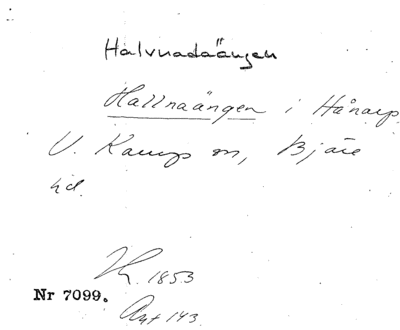 Halvnadaängen
Hallnaängen i Hånarp
V. Karups sn, Bjäre
hd.
Kh. 1853
Nr 7099.
Ant 143.